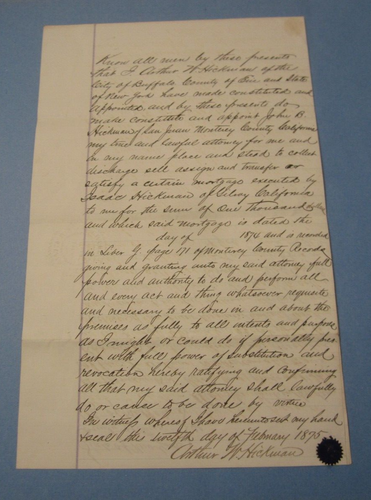 Know all men by these presents
that I Arthur W Hickman of the
City of Buffalo County of Erie and State
of New York have made constituted and
appointed and by these presents do
make constitute and appoint John B.
Hickman of San Juan Monterey County California
my true and lawful attorney for me and
in my name place and stead to collect
discharge sell assign and transfer or
satisfy a certain mortgage executed by
Isaac Hickman of Gilroy California
to me for the sum of One thousand
and which said mortgage is dated the
day of 1874 and is recorded
in Liber G page 171 of Monterey County Records
giving and granting unto my said attorney full
power and authority to do and perform all
and every act and thing whatsoever requisite
and necessary to be done in and about the
premises as fully to all intents and purpose
as I might or could do if personally pres
ent with full power of substitution and
revocation hereby ratifying and confirming
all that my said attorney shall lawfully
do or cause to be done by virtue
In witness whereof I have hereunto set my hand
& seal this twelfth day of February 1875
Arthur W. Hickman